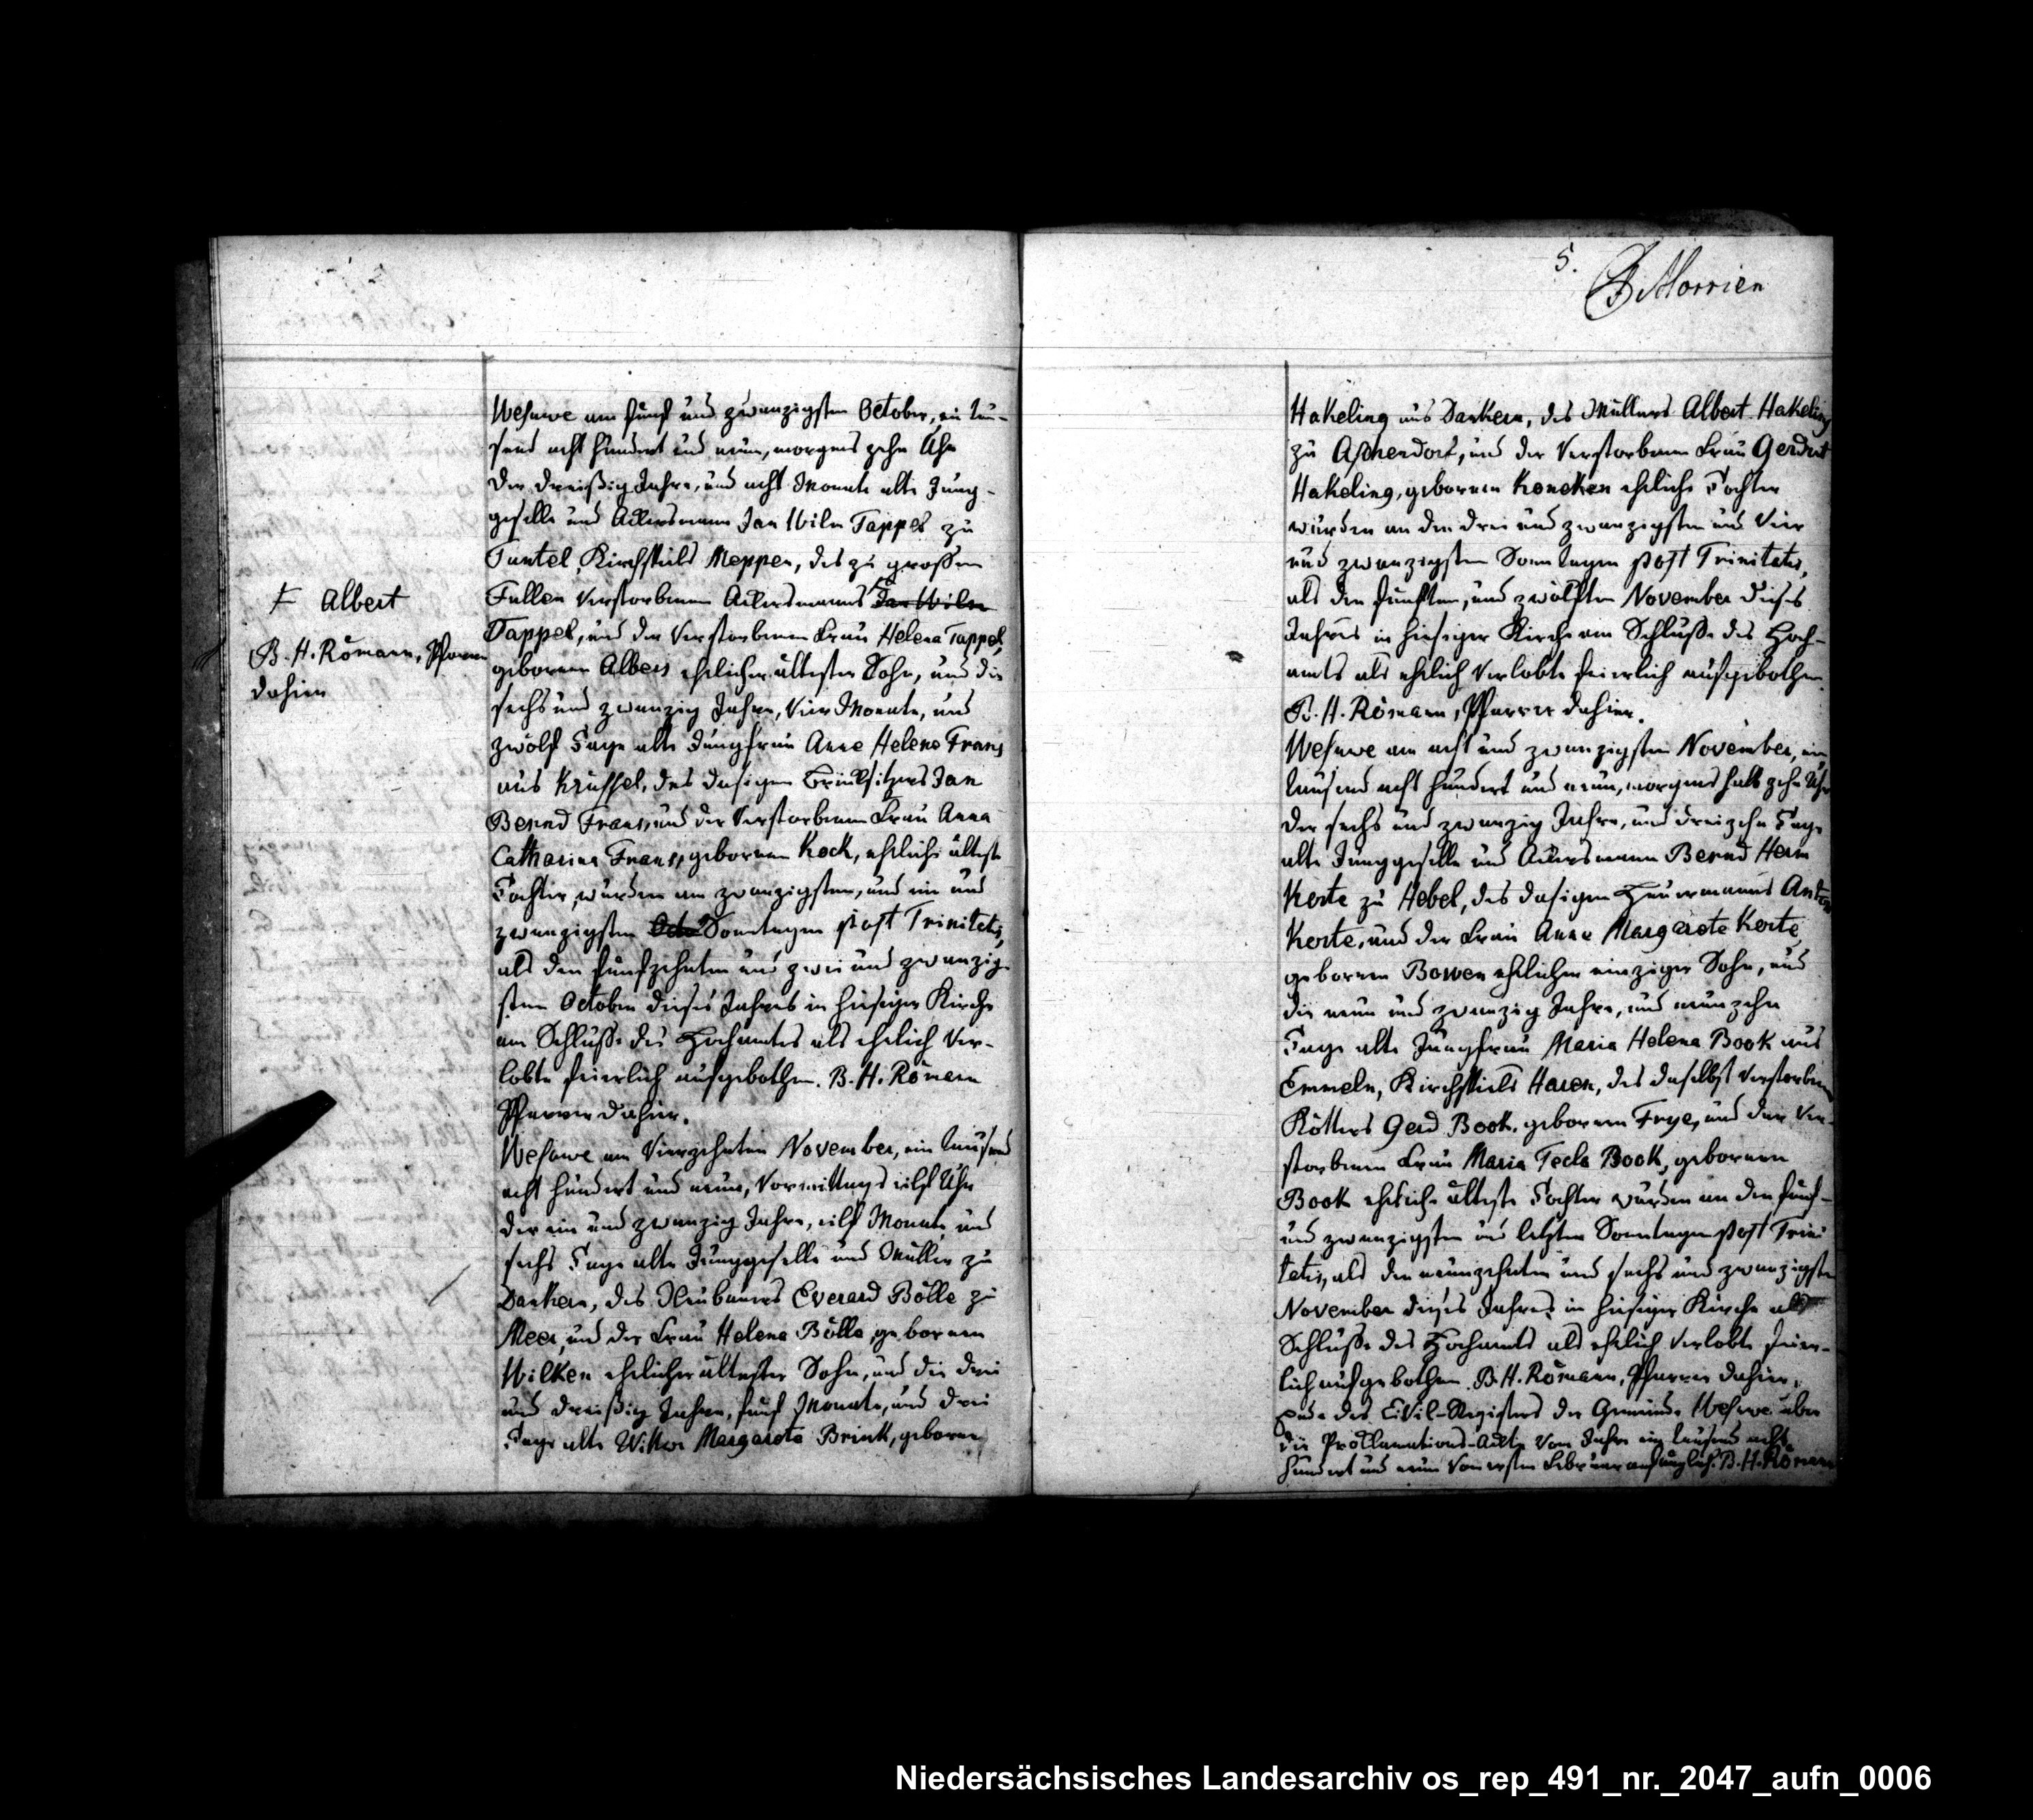 Ŧ Albert
B. H. Römann, Pfarrer
dahier
Wesuwe am fünf und zwanzigsten October, ein tau-
send acht hundert und neun, morgens zehn Uhr
Der dreißig Jahre, und acht Monate alte Jung-
geselle und Ackersmann Jan Wilm Tappel zu
Tuntel, Kirchspiels Meppen, des zu großen
Fullen verstorbenen Ackersmanns Ŧ Jan Wilm
Tappel, und der verstorbenen Frau Helena Tappel,
gebornen Albers ehelicher ältester Sohn, und die
sechs und zwanzig Jahre, vier Monate, und
zwölf Tage alte Jungfrau Anna Helena Frans
aus Krüssel, des dasigen Brinksitzers Jan
Bernd Frans, und der verstorbenen Frau Anna
Catharina Frans, gebornen Kock, eheliche älteste
Tochter, wurden am zwanzigsten, und ein und
zwanzigsten Octo Sonntagen post Trinitatis,
als den funfzehnten und zwei und zwanzig-
sten October dieses Jahres in hiesiger Kirche
am Schlusse des Hochamtes als ehelich Ver-
lobte feierlich aufgebothen. B. H. Römann
Pfarrer dahier.
Wesuwe am vierzehnten November, ein tausend
acht hundert und neun, Vormittags eilf Uhr
Der ein und zwanzig Jahre, eilf Monate, und
sechs Tage alte Junggeselle und Müller zu
Dankern, des Neubauers Everard Bölle zu
Meer, und der Frau Helena Bölle, gebornen
Wilken ehelicher ältester Sohn, und die drei
und dreißig Jahre, fünf Monate, und drei
Tage alte Witwe Margareta Brink, geborne
5.
Morrien
Hakeling aus Dankern, des Müllers Albert Hakeling
zu Aschendorf, und der verstorbenen Frau Gerdrut
Hakeling, gebornen Koncken eheliche Tochter
wurden an den drei und zwanzigsten und vier
und zwanzigsten Sonntagen post Trinitatis,
als den fünften, und zwölften November dieses
Jahres in hiesiger Kirche am Schlusse des Hoch-
amts als ehelich Verlobte feierlich aufgebothen.
B. H. Römann, Pfarrer dahier.
Wesuwe am acht und zwanzigsten November, ein
tausend acht hundert und neun, morgens halb zehn Uhr
Der sechs und zwanzig Jahre, und dreizehn Tage
alte Junggeselle und Ackersmann Bernd Herm
Korte zu Hebel, des dasigen Heuermanns Anton
Korte, und der Frau Anna Margareta Korte,
gebornen Bowen ehelicher einziger Sohn, und
die neun und zwanzig Jahre, und neunzehn
Tage alte Jungfrau Maria Helena Book aus
Emmeln, Kirchspiels Haren, des daselbst verstorbenen
Kötters Gerd Book, gebornen Frye, und der ver-
storbenen Frau Maria Tecla Book, gebornen
Book eheliche älteste Tochter wurden an den fünf-
und zwanzigsten und letzten Sonntagen post Trini
tatis, als den neunzehnten und sechs und zwanzigsten
November dieses Jahres in hiesiger Kirche
Schlusse des Hochamts als ehelich Verlobte feier-
lich aufgebothen. B. H. Römann, Pfarrer dahier.
Ende des Civil-Registers der Gemeinde Wesuwe über
die Proclamations-Acten vom Jahre ein tausend acht
hundert und neun vom ersten Februar anfänglich. B. H. Römann
Niedersächsisches Landesarchiv os_rep_491_nr._2047_aufn_0006